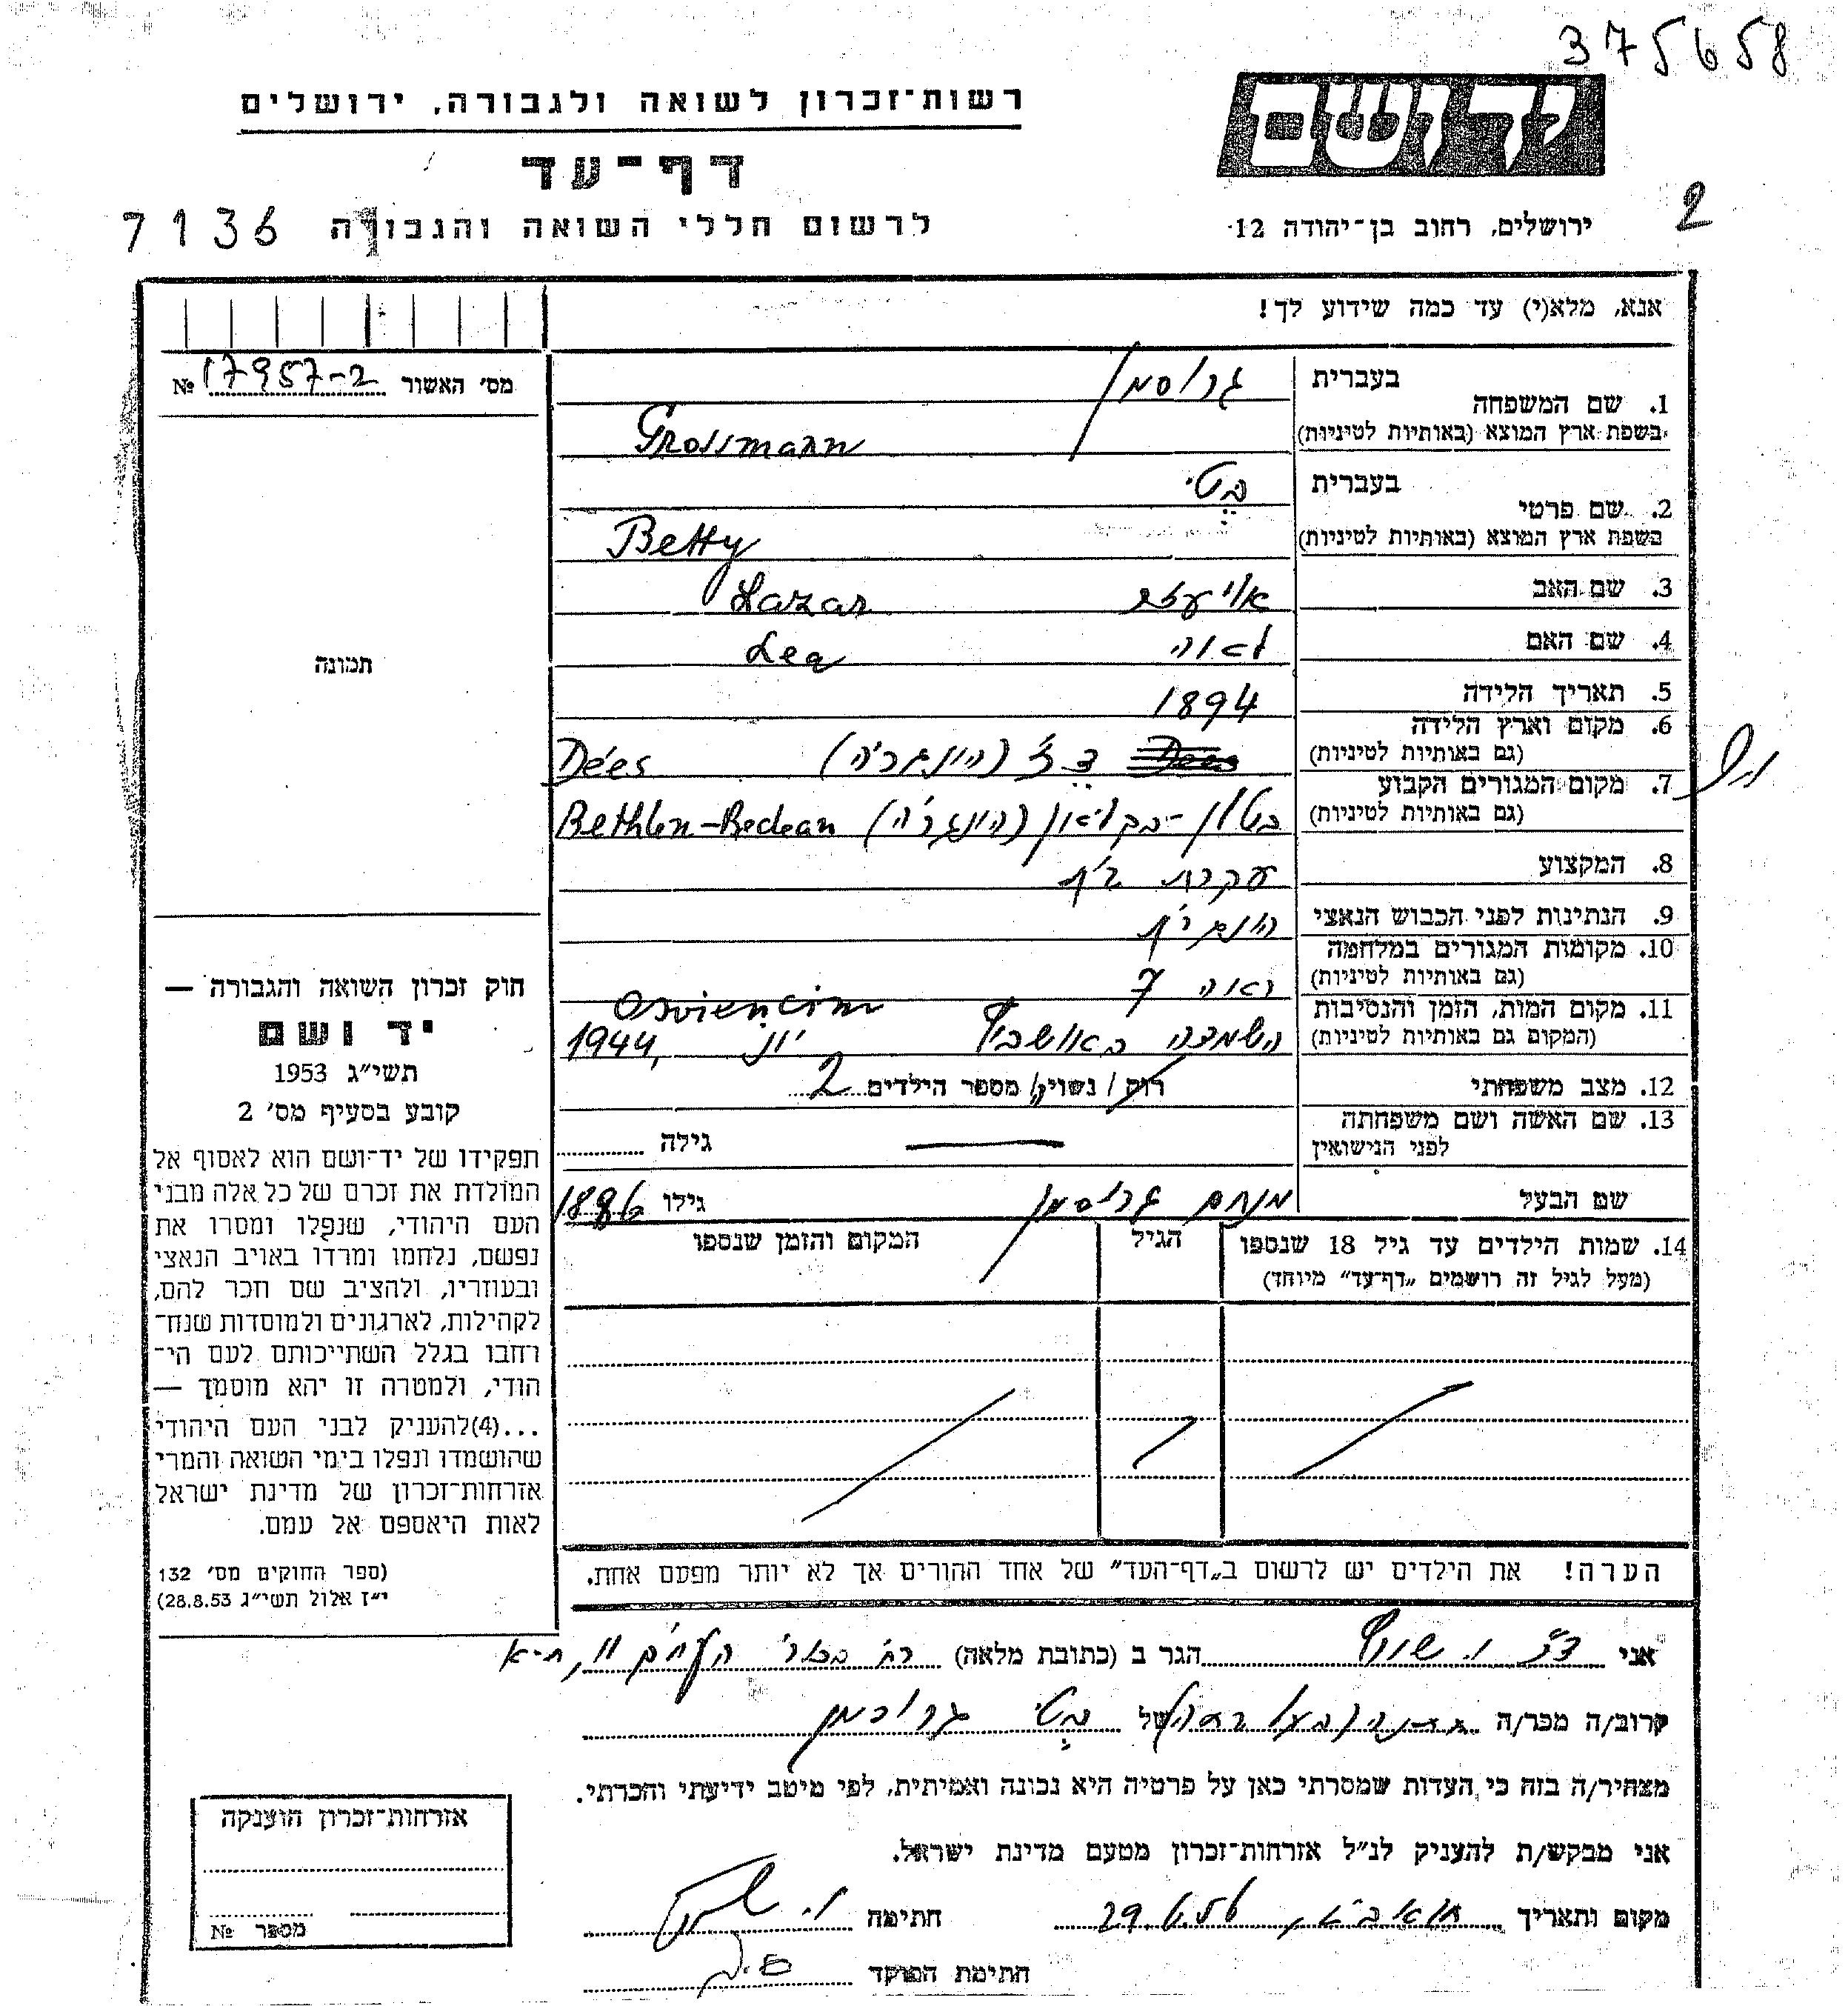 375658
יד ושם
רשות־זכרון לשואה ולגבורה, ירושלים
דף־עד
לרשום חללי השואה והגבורה 7136
ירושלים, רחוב בן־יהודה 12
2
אנא, מלא(י) עד כמה שידוע לך!
מס׳ האשור 17957-2 №
תמונה
בעברית גרוסמן
1. שם המשפחה
בשפת ארץ המוצא (באותיות לטיניות) Grossmann
בעברית בטי
2. שם פרטי
בשפת ארץ המוצא (באותיות לטיניות) Betty
3. שם האב אליעזר Lazar
4. שם האם לאה Lea
5. תאריך הלידה 1894
6. מקום וארץ הלידה
(גם באותיות לטיניות) דז׳ (הונגריה) Dées
7. מקום המגורים הקבוע
(גם באותיות לטיניות) בטלן-בקליאן (הונגריה) Bethlen-Beclean
8. המקצוע עקרת בית
9. הנתינות לפני הכבוש הנאצי הונגרית
10. מקומות המגורים במלחמה
(גם באותיות לטיניות) ראה 7
11. מקום המות, הזמן והנסיבות Osviencim
(המקום גם באותיות לטיניות) הושמדה באושביץ יוני 1944,
12. מצב משפחתי רוק/ נשוי/ מספר הילדים 2
13. שם האשה ושם משפחתה
לפני הנישואין גילה
שם הבעל מנחם גרוסמן גילו 1886
14. שמות הילדים עד גיל 18 שנספו הגיל המקום והזמן שנספו
(מעל לגיל זה רושמים „דף־עד” מיוחד)
הערה! את הילדים יש לרשום ב„דף־העד” של אחד ההורים אך לא יותר מפעם אחת.
חוק זכרון השואה והגבורה —
יד ושם
תשי״ג 1953
קובע בסעיף מס׳ 2
תפקידו של יד־ושם הוא לאסוף אל
המולדת את זכרם של כל אלה מבני
העם היהודי, שנפלו ומסרו את
נפשם, נלחמו ומרדו באויב הנאצי
ובעוזריו, ולהציב שם וזכר להם,
לקהילות, לארגונים ולמוסדות שנח־
רחבו בגלל השתייכותם לעם הי־
הודי, ולמטרה זו יהא מוסמך —
...(4)להעניק לבני העם היהודי
שהושמדו ונפלו בימי השואה והמרי
אזרחות־זכרון של מדינת ישראל
לאות היאספם אל עמם.
(ספר החוקים מס׳ 132
י״ז אלול תשי״ג 28.8.53)
אני הגר ב (כתובת מלאה)
קרוב/ה מכר/ה של בטי גרוסמן
מצהיר/ה בזה כי העדות שמסרתי כאן על פרטיה היא נכונה ואמיתית, לפי מיטב ידיעתי והכרתי.
אני מבקש/ת להעניק לנ״ל אזרחות־זכרון מטעם מדינת ישראל.
מקום ותאריך תל אביב, 29.6.56 חתימה
חתימת הפוקד
אזרחות־זכרון הוענקה
מספר №